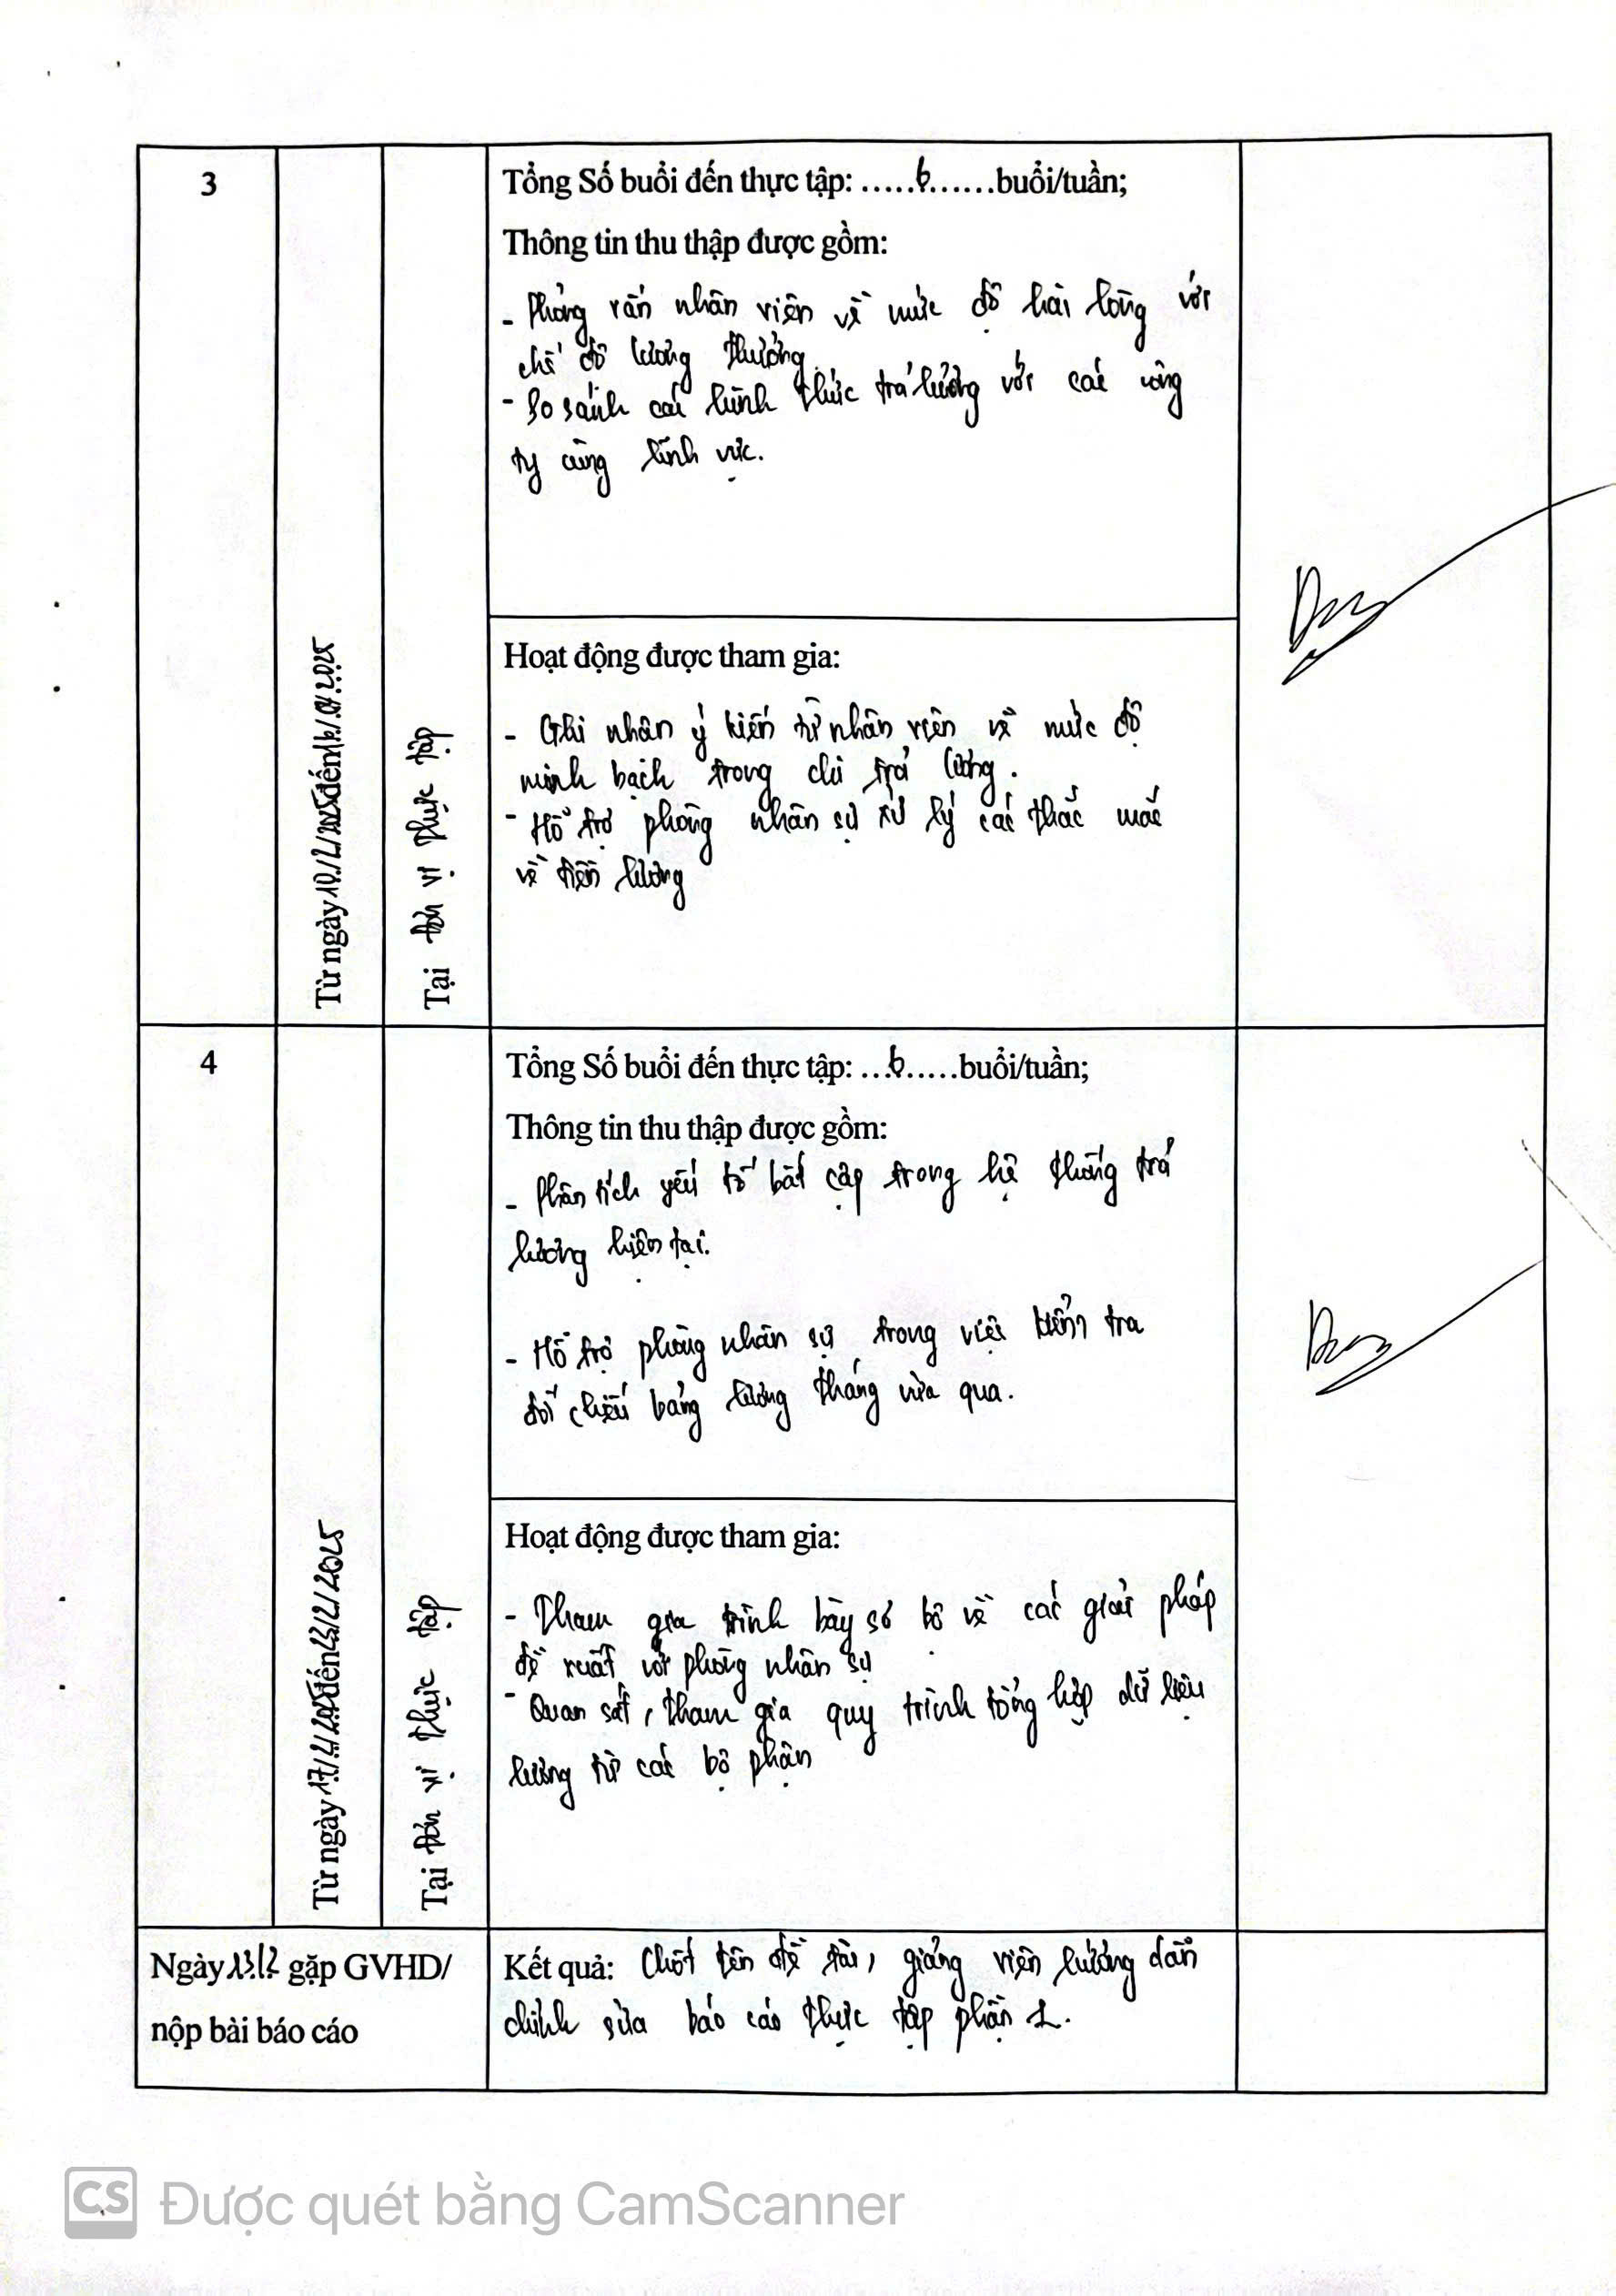 3
Từ ngày 10/2/2025 đến
Tại đơn vị thực tập
Tổng Số buổi đến thực tập: .....6......buổi/tuần;
Thông tin thu thập được gồm:
- Phỏng vấn nhân viên về mức độ hài lòng với
chế độ lương thưởng.
- So sánh các hình thức trả lương với các công
ty cùng lĩnh vực.
Hoạt động được tham gia:
- Ghi nhận ý kiến từ nhân viên về mức độ
minh bạch trong chi trả lương.
- Hỗ trợ phòng nhân sự xử lý các thắc mắc
về tiền lương
4
Từ ngày 17/2/2025 đến 23/2/2025
Tại đơn vị thực tập
Tổng Số buổi đến thực tập: ...6.....buổi/tuần;
Thông tin thu thập được gồm:
- Phân tích yếu tố bất cập trong hệ thống trả
lương hiện tại.
- Hỗ trợ phòng nhân sự trong việc kiểm tra
đối chiếu bảng lương tháng vừa qua.
Hoạt động được tham gia:
- Tham gia trình bày sơ bộ về các giải pháp
đề xuất với phòng nhân sự
- Quan sát, tham gia quy trình tổng hợp dữ liệu
lương từ các bộ phận
Ngày 23/2 gặp GVHD/
nộp bài báo cáo
Kết quả: Chốt tên đề tài, giảng viên hướng dẫn
chỉnh sửa báo cáo thực tập phần 1.
CS Được quét bằng CamScanner